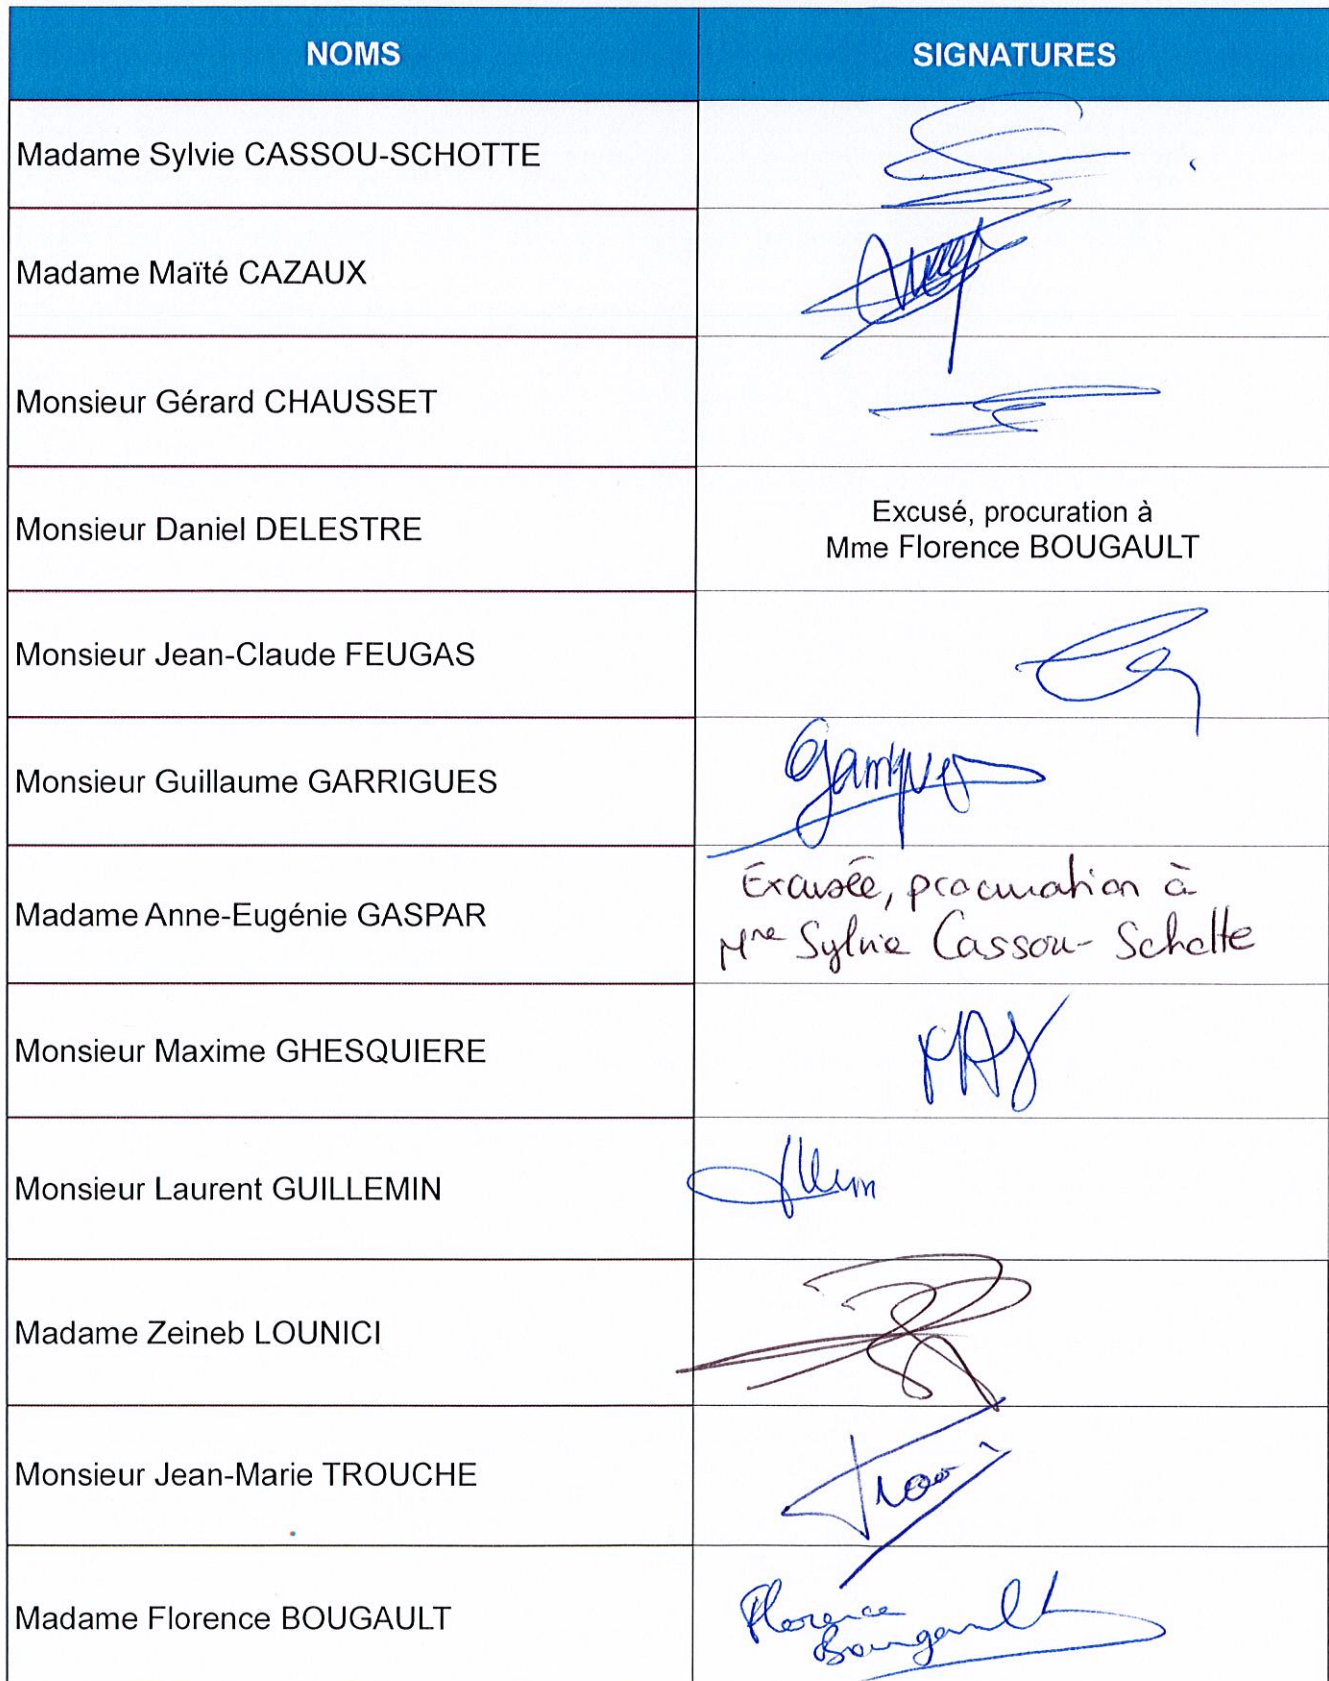 NOMS SIGNATURES
Madame Sylvie CASSOU-SCHOTTE
Madame Maïté CAZAUX
Monsieur Gérard CHAUSSET
Monsieur Daniel DELESTRE
Excusé, procuration à
Mme Florence BOUGAULT
Monsieur Jean-Claude FEUGAS
Monsieur Guillaume GARRIGUES
Madame Anne-Eugénie GASPAR
Excusée, procuration à
Mme Sylvie Cassou-Schotte
Monsieur Maxime GHESQUIERE
Monsieur Laurent GUILLEMIN
Madame Zeineb LOUNICI
Monsieur Jean-Marie TROUCHE
Madame Florence BOUGAULT
Florence
Bougault